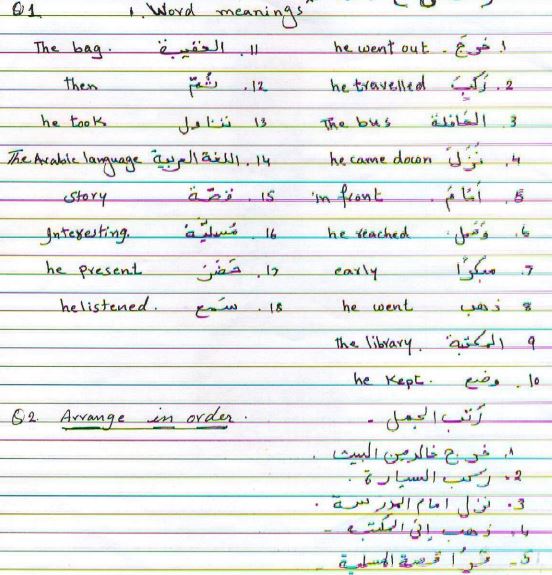 Q1 1. Word meanings
The bag. الحقيبة .11 he went out . خرجَ .1
then ثُمّ .12 he travelled رَكِبَ .2
he took تناول .13 The bus الحافلة .3
The Arabic language اللغة العربية .14 he came down نَزَلَ .4
story قصّة .15 in front أَمَامَ .5
Interesting. مُسليّة .16 he reached وَصَل .6
he present حَضَرَ .17 early مبكرًا .7
he listened. سَمع .18 he went ذهب 8
the library. المكتبة 9
he kept. وضع .10
Q2. Arrange in order. رَتب الجمل -
1. خرج خالد من البيت .
2. ركب السيارة .
3. نزل امام المدرسة .
4. ذهب إلى المكتبه -
5- قرأ المسلية -